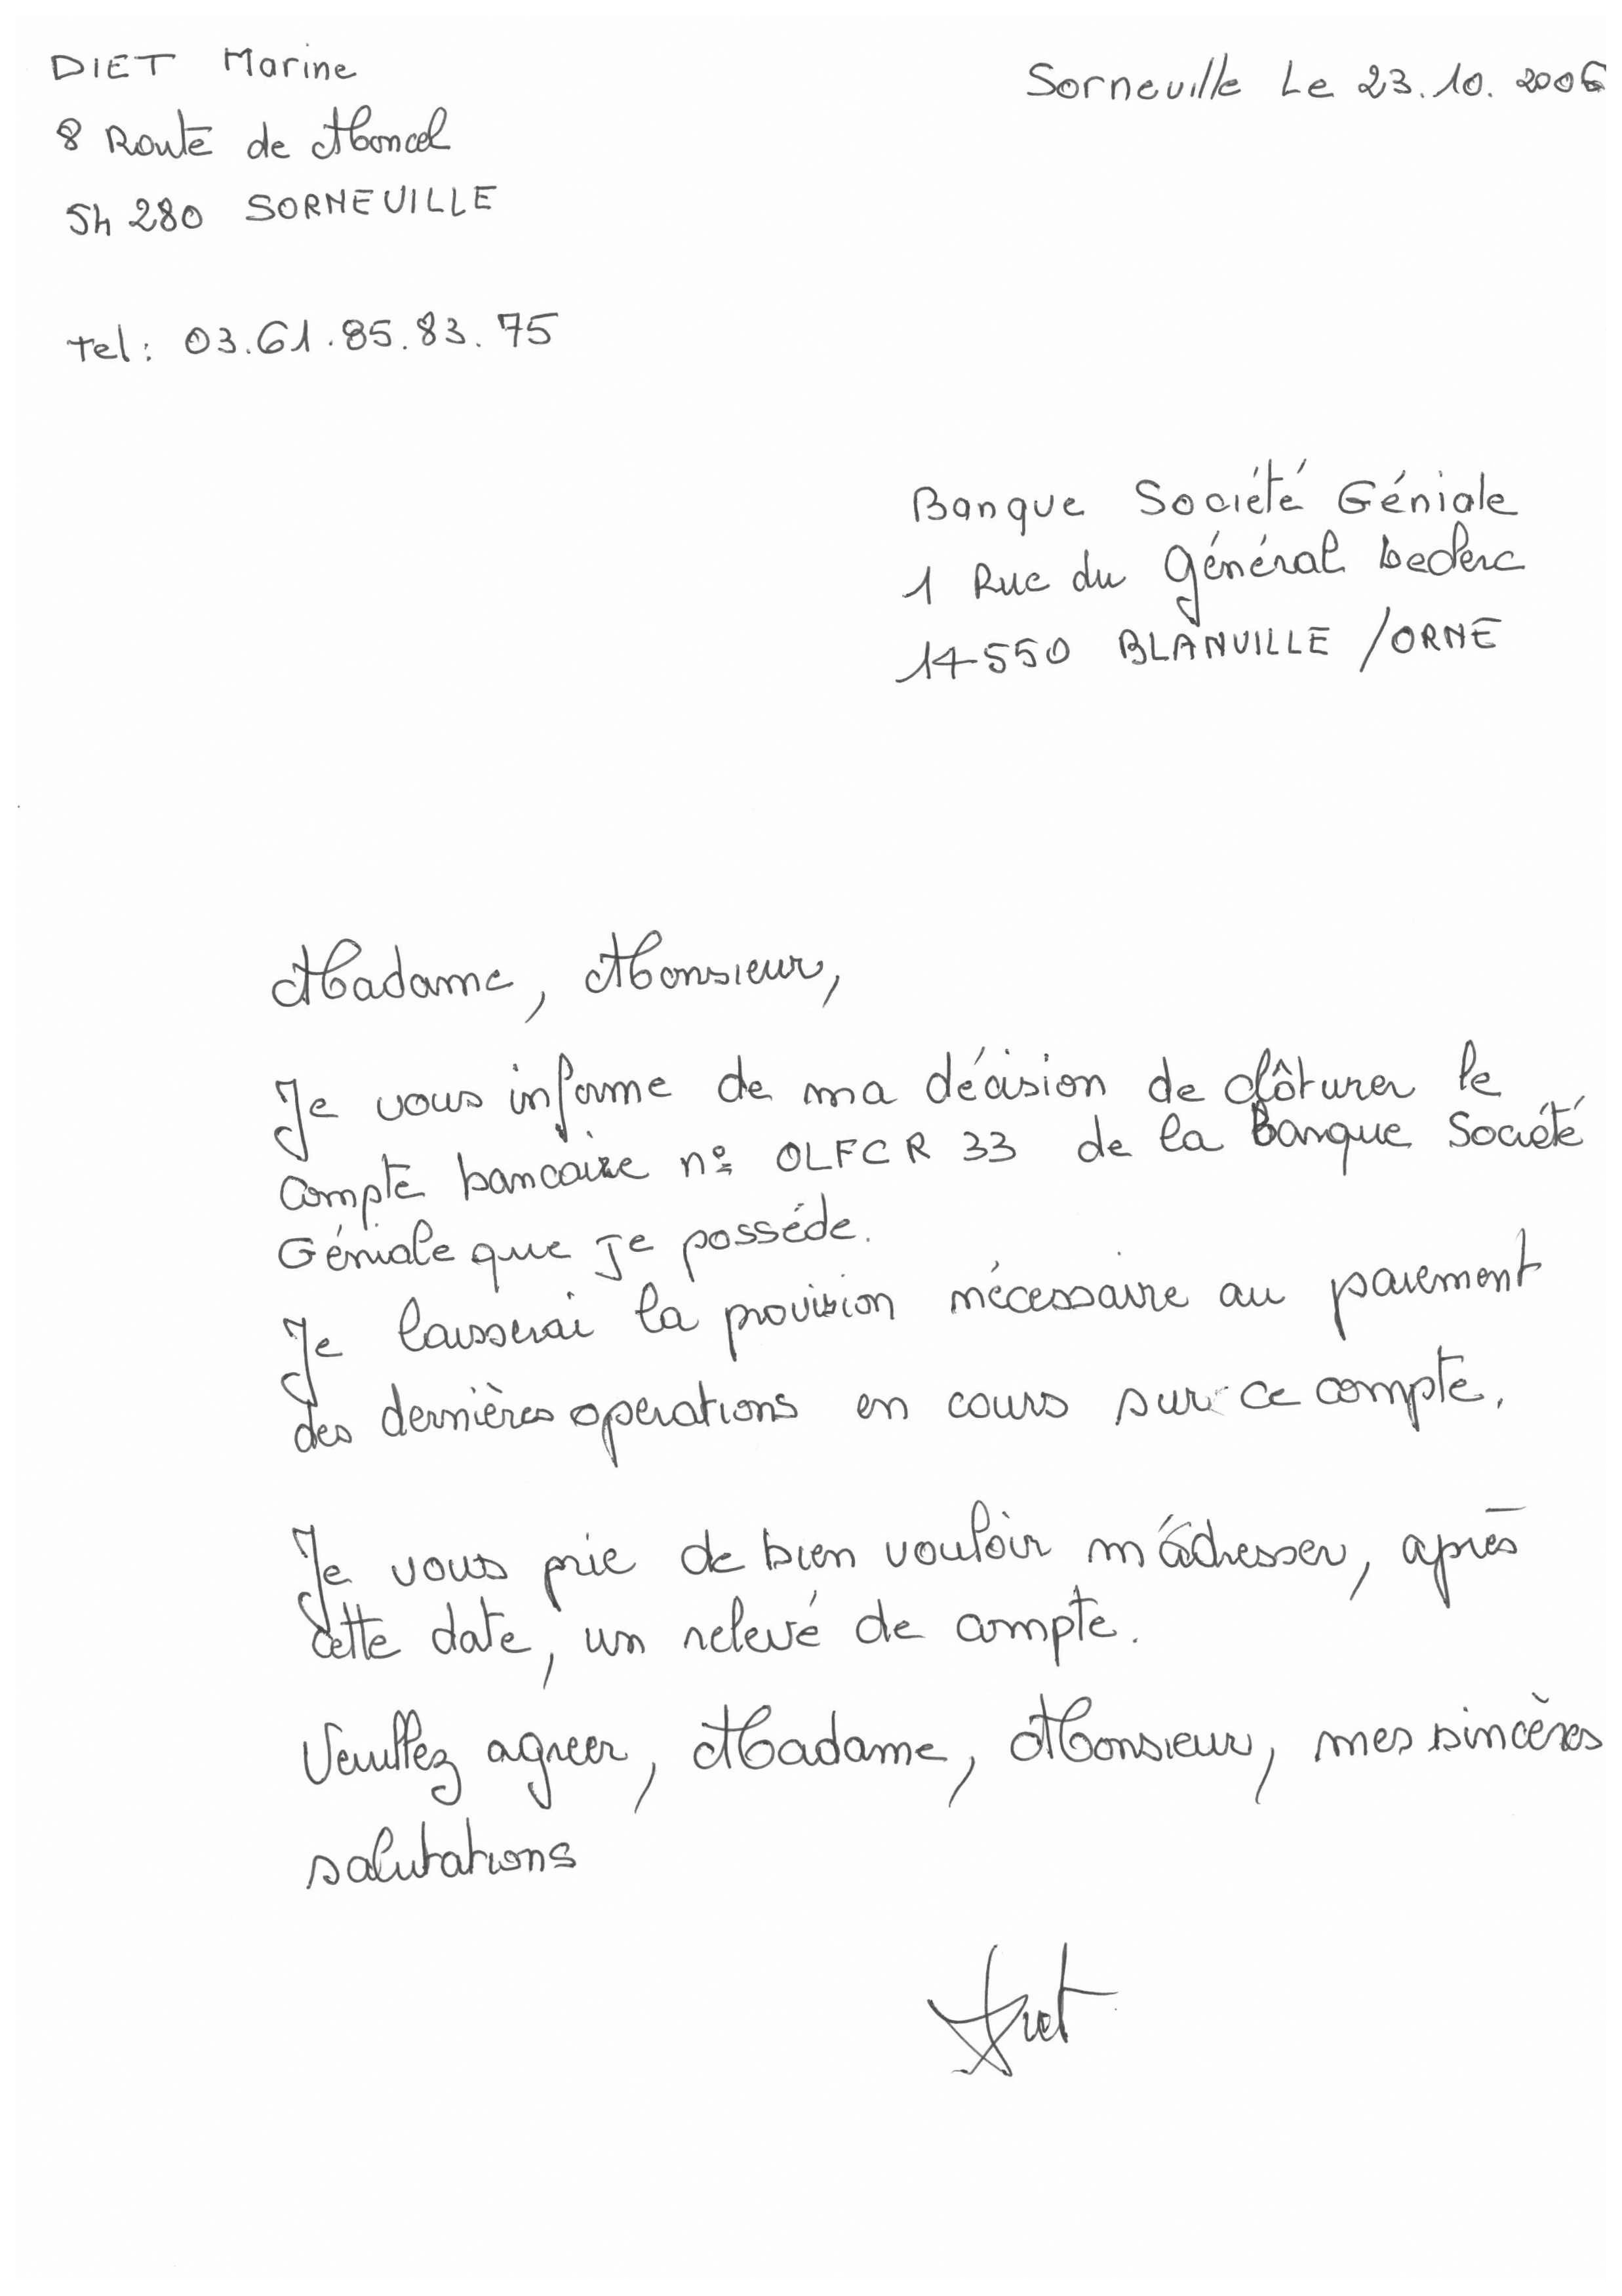 DIET Marine
Sorneville Le 23.10.2006
8 Route de Moncel
54 280 SORNEVILLE
tel : 03.61.85.83.75
Banque Société Géniale
1 Rue du Général Leclerc
14550 BLANVILLE /ORNE
Madame, Monsieur,
Je vous informe de ma décision de clôturer le
compte bancaire n° OLFCR 33 de la Banque Société
Géniale que je posséde.
Je laisserai la provision nécessaire au paiement
des dernières operations en cours sur ce compte.
Je vous prie de bien vouloir m'adresser, après
cette date, un relevé de compte.
Veuillez agreer, Madame, Monsieur, mes sincères
salutations
Diet